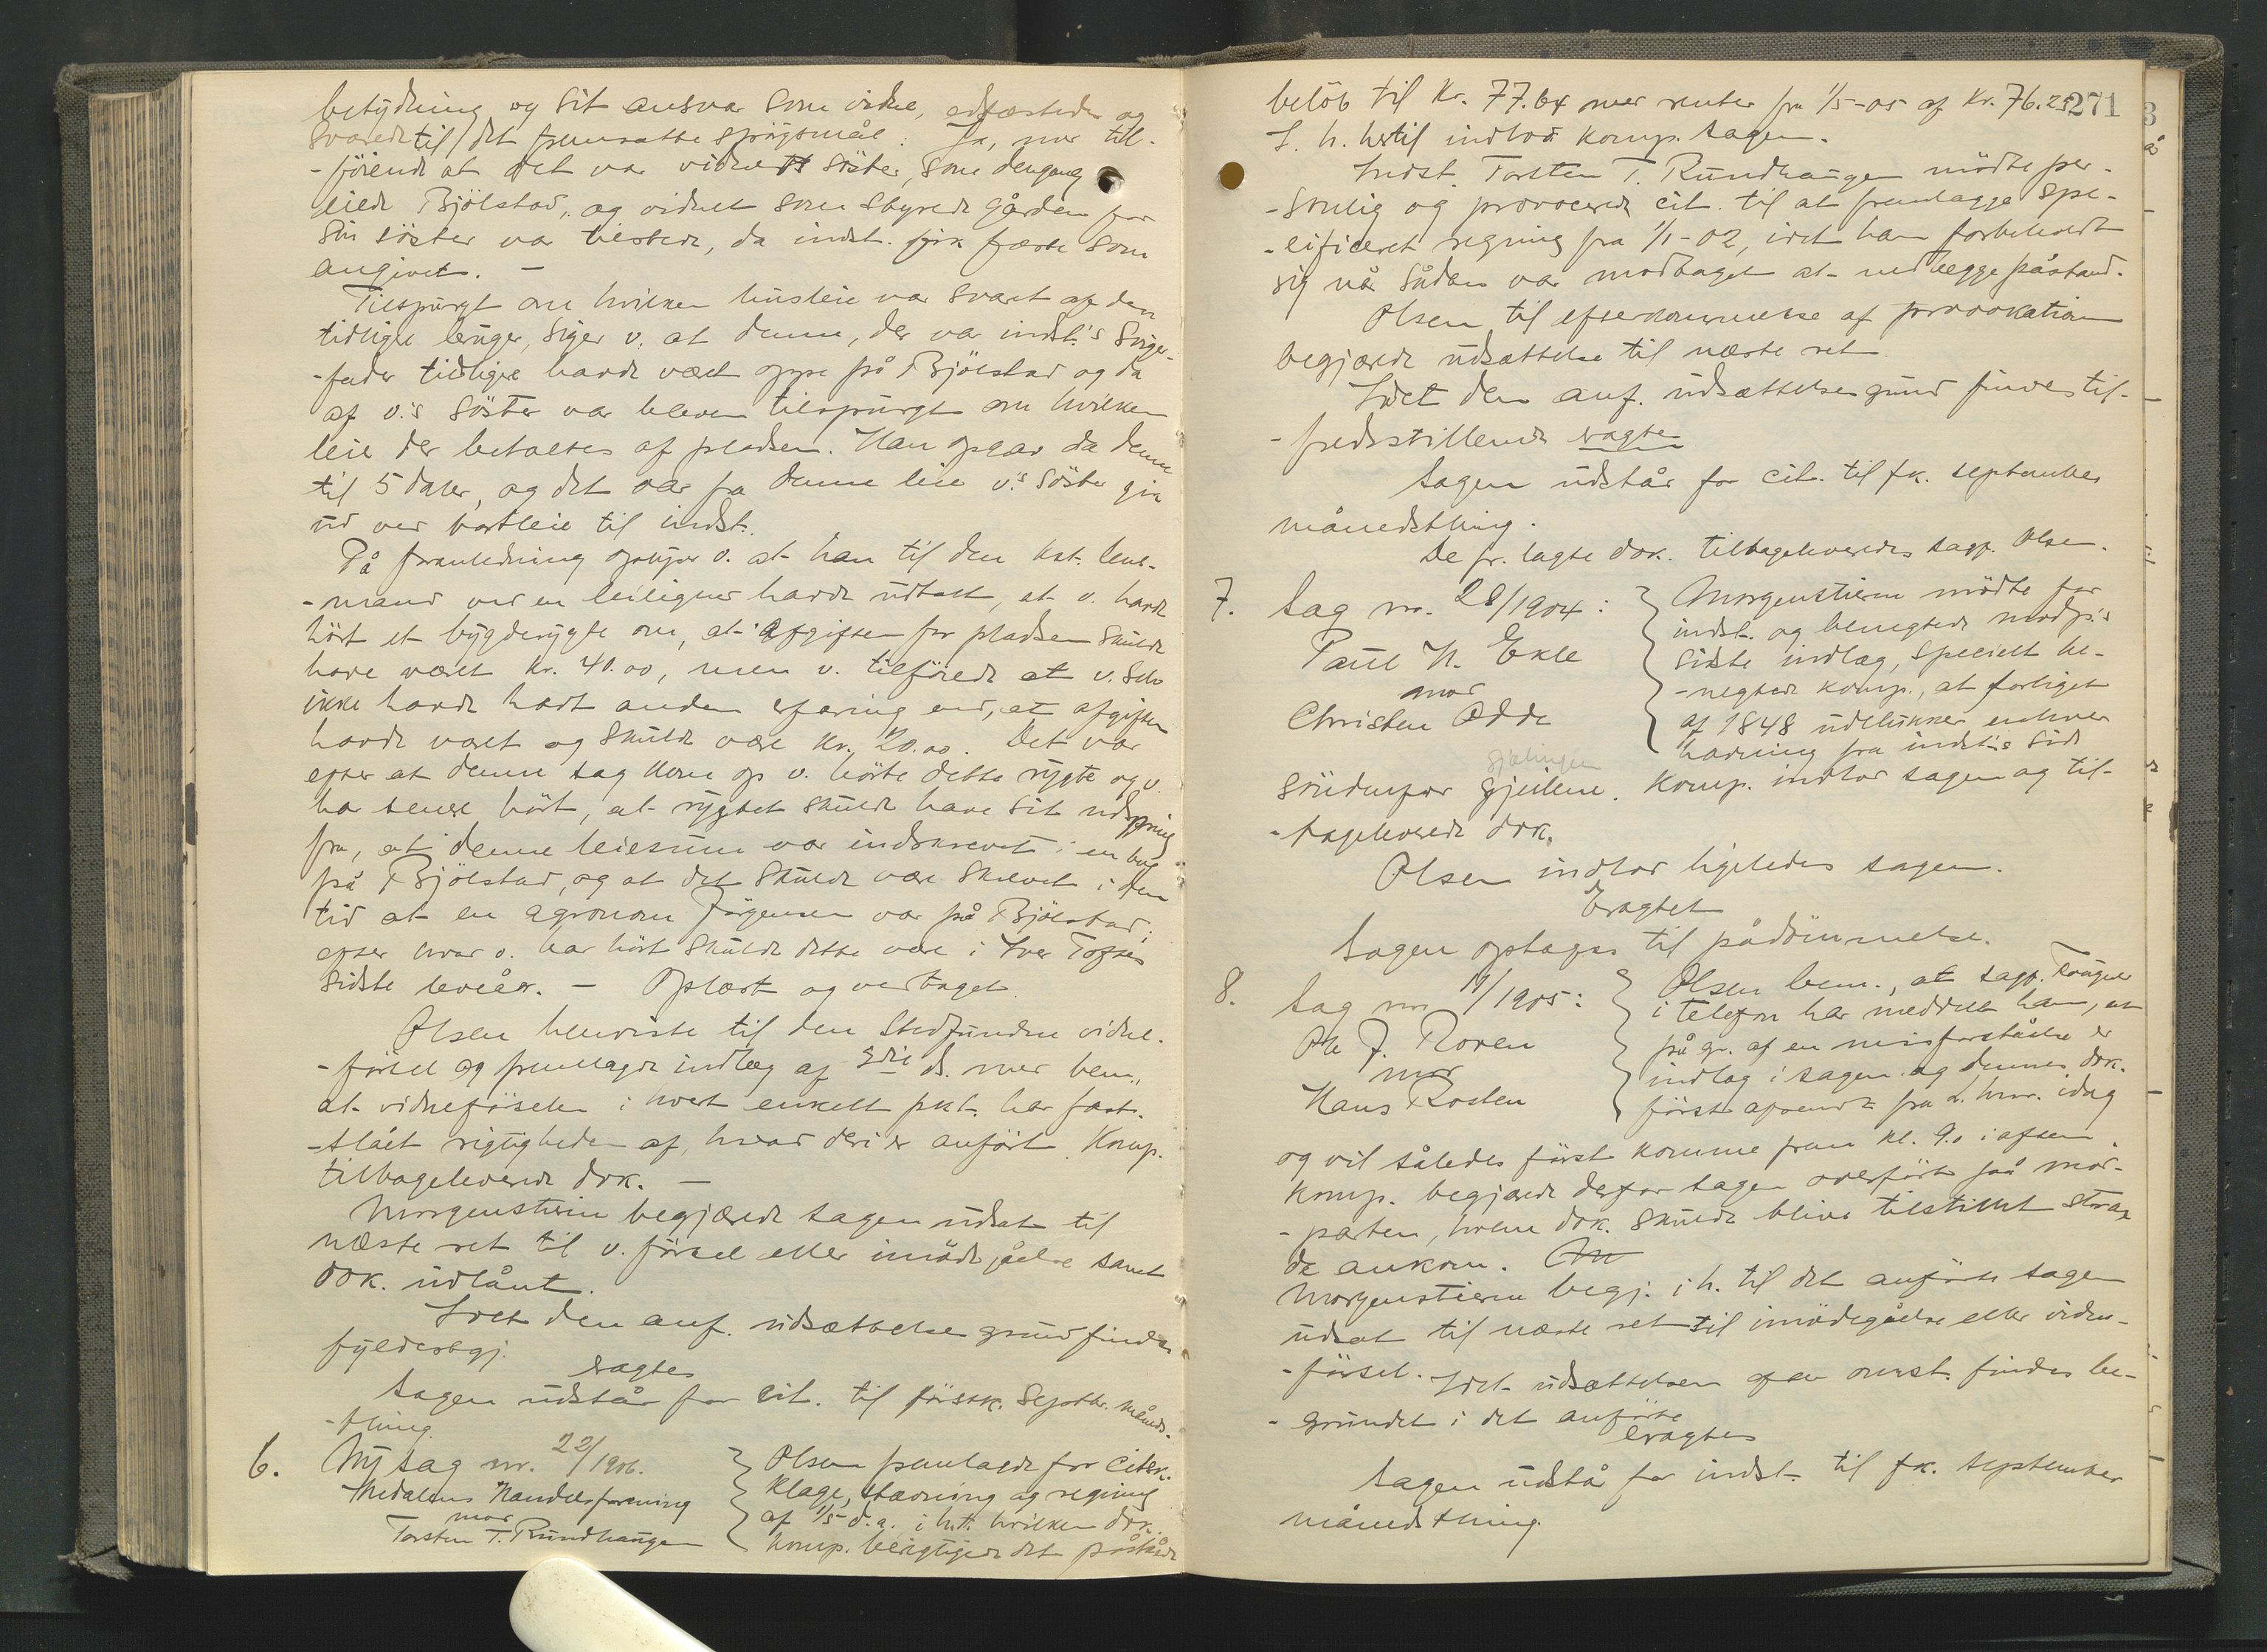 betydning og sit ansvar som vidne, edfæstedes og
svarede til det fremsatte spörgsmål: Ja, mer til-
-föiende at det var vidnets söster, som dengang
eiede Bjölstad, og vidnet som styrede gården for
sin söster var tilstede, da indst. fik fæste som
angivet. —
Tilspurgt om hvilken husleie var svaret af den
tidligere bruger, siger v. at denne, der var indst.'s sviger-
-fader tidligere havde vært oppe på Bjölstad og da
af v.'s söster var bleven tilspurgt om hvilken
leie der betaltes af pladsen. Han opgav da denne
til 5 daler, og det var fra denne leie v.'s söster gik
ud ved bortleie til indst.
På foranledning oplyser v. at han til den kst. lens-
-mand ved en leilighed havde udtalt, at v. havde
hört et bygderygte om, at afgiften for pladsen skulde
have været Kr. 40.00, men v. tilföiede at v. selv
ikke havde havt anden erfaring end, at afgiften
havde været og skulde være Kr. 20.00. Det var
efter at denne sag kom op v. hörte dette rygte og v.
har senere hört, at rygtet skulde have sit udspring
fra, at denne leiesum var indskrevet i en bog
på Bjölstad, og at det skulde være skrevet i den
tid at en agronom Jörgensen var på Bjölstad;
efter hvad v. har hört skulde dette være i Iver Toftes
sidste leveår. — Oplæst og vedtaget.
Olsen henviste til den stedfundne vidne-
-försel og fremlagde indlæg af ds. med bem.,
at vidneförselen i hvert enkelt pkt. har fast-
-slået rigtigheden af, hvad deri er anfört. Komp.
tilbageleverede dok. —
Morgenstierne begjærede sagen udsat til
næste ret til v. försel eller imödegåelse samt
dok. udlånt.
Idet den anf. udsættelsesgrund findes
fyldestgj.
eragtes
Sagen udstår for cit. til förstk. Septbr. måneds-
-thing.
6. Ny sag nr. 22/1906.
Hedalens Handelsforening
mod
Torsten T. Rundhaugen
Olsen fremlagde for citsk.
klage, stævning og regning
af 1/5 d.a. i h.t. hvilken dok.
komp. berigtigede det påståede
271
belöb til Kr. 77.64 med renter fra 1/5-05 af Kr. 76.25
I. h. hertil indlod komp. sagen.
Indst. Torsten T. Rundhaugen mödte per-
-sonlig og provocerede cit. til at fremlægge spe-
-cificeret regning fra 1/1-02, idet han forbeholdt
sig når sådan var modtaget at nedlegge påstand.
Olsen til efterkommelse af provokationen
begjærede udsættelse til næste ret.
Idet den anf. udsættelsesgrund findes til-
-fredsstillende eragtes
Sagen udstår for cit. til fk. september
månedsthing.
De fr. lagte dok. tilbageleveredes sagf. Olsen.
7. Sag nr. 28/1904:
Paul H. Ekle
mod
Christen Odde
Morgenstierne mödte for
indst. og benegtede modp.'s
sidste indlæg, specielt be-
-negtede komp., at forliget
af 1848 udelukker enhver
havning fra indst.'s side
gjelingen
söndenfor Gjeilene. Komp. indlod sagen og til-
-bageleverede dok.
Olsen indlod ligeledes sagen.
Eragtet
Sagen optages til pådömmelse.
8. Sag nr. 11/1905:
Ole J. Roven
mod
Hans Rosten
Olsen bem., at sagf.
i telefon har meddelt ham, at
på gr. af en misforståelse er
indlæg i sagen og dennes dok.
först afsendt fra L.hmr. idag
og vil således först komme frem kl. 9.0 i aften.
Komp. begjærede derfor sagen overfört på mod-
-parten, hvem dok. skulde blive tilstillet strax
de ankom.
Morgenstierne begj. i h. til det anförte sagen
udsat til næste ret til imödegåelse eller vidne-
-försel. Idet udsættelsen af den omst. findes be-
-grundet i det anförte
eragtes
Sagen udstår for indst. til fk. september
månedsthing.